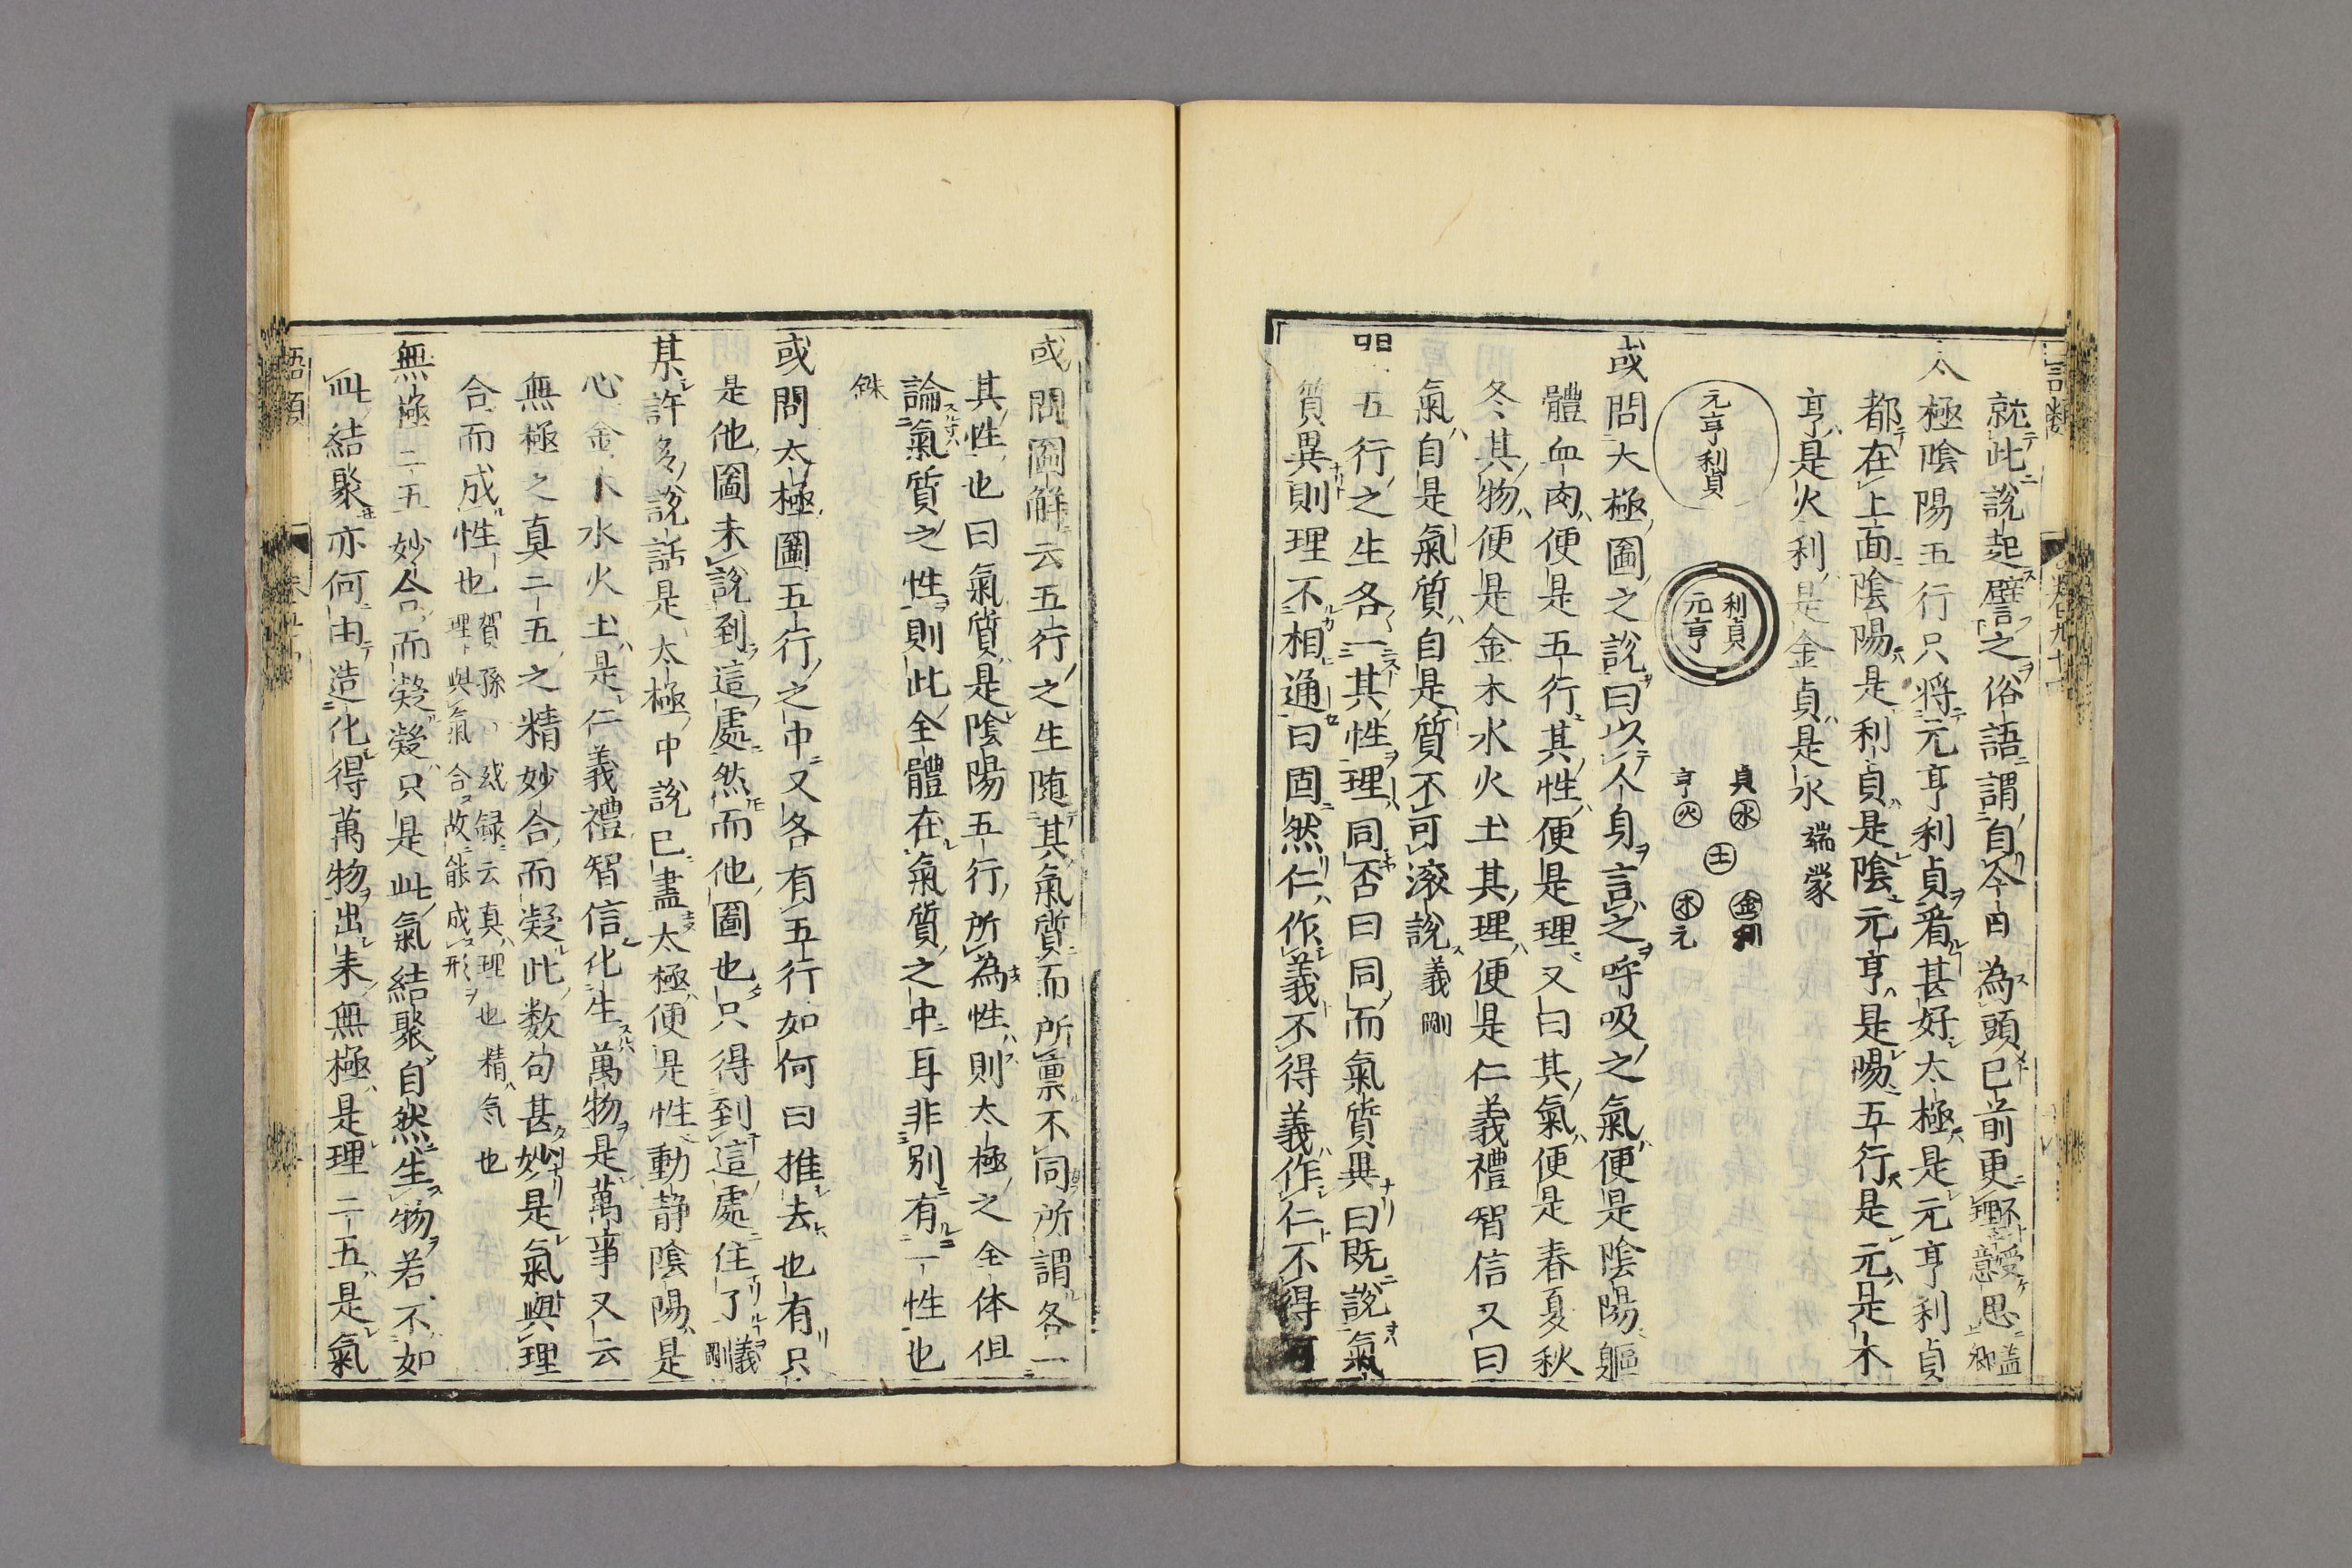 就此說起譬之俗語謂自今日為頭已前更不受理意思蓋卿
太極陰陽五行只將元亨利貞看甚好太極是元亨利貞
都在上面陰陽是利貞是陰元亨是陽五行是元是木
亨是火利是金貞是水端蒙
元亨利貞
利貞
元亨
貞水
亨火
土
金利
木元
或問太極圖之說曰以人身言之呼吸之氣便是陰陽軀
體血肉便是五行其性便是理又曰其氣便是春夏秋
冬其物便是金木水火土其理便是仁義禮智信又曰
氣自是氣質自是質不可滚說義剛
五行之生各一其性理同否曰同而氣質異曰既說氣
質異則理不相通曰固然仁作義不得義作仁不得
或問圖解云五行之生随其氣質而所稟不同所謂各一
其性也曰氣質是陰陽五行所為性則太極之全体但
論氣質之性則此全體在氣質之中耳非別有一性也
銖
或問太極圖五行之中又各有五行如何曰推去也有只
是他圖未說到這處然而他圖也只得到這處住了義剛
某許多說話是太極中說已盡太極便是性動静陰陽是
心金木水火土是仁義禮智信化生萬物是萬事又云
無極之真二五之精妙合而凝此数句甚妙是氣與理
合而成性也賀孫或録云真理也精気也
理與氣合故能成形
無極二五妙合而凝凝只是此氣結聚自然生物若不如
此結聚亦何由造化得萬物出来無極是理二五是氣
語類